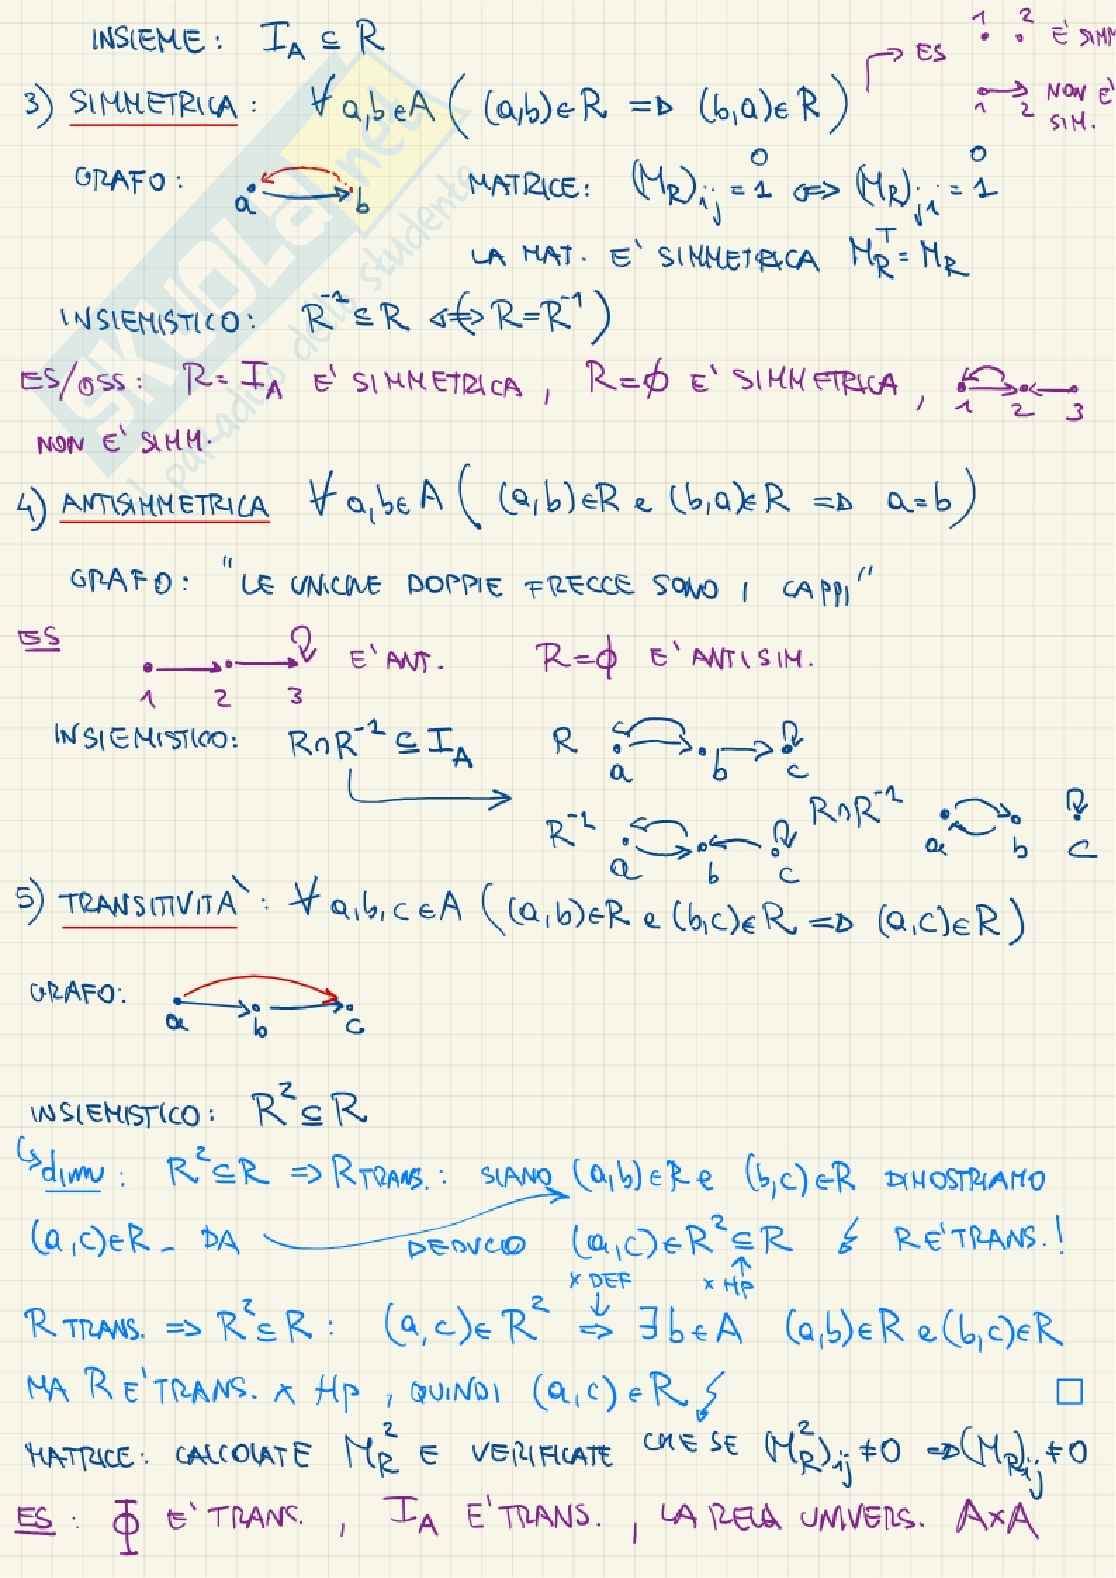 INSIEME: I_A ⊆ R
1 2 È SIMM
ES
3) SIMMETRICA: ∀ a,b∈A ((a,b)∈R => (b,a)∈R)
1 2 NON È SIM.
GRAFO: a b MATRICE: (M_R)_ij = 1 0 <=> (M_R)_ji = 1 0
LA MAT. È SIMMETRICA M_R^T = M_R
INSIEMISTICO: R^-1 ⊆ R (<=> R=R^-1)
ES/OSS: R = I_A È SIMMETRICA, R=∅ È SIMMETRICA, 1 2 3
NON È SIMM.
4) ANTISIMMETRICA ∀ a,b∈A ((a,b)∈R e (b,a)∈R => a=b)
GRAFO: "LE UNICHE DOPPIE FRECCE SONO I CAPPI"
ES 1 2 3 È ANT. R=∅ È ANTISIM.
INSIEMISTICO: R∩R^-1 ⊆ I_A R a b c
R^-1 a b c R∩R^-1 a b c
5) TRANSITIVITÀ: ∀ a,b,c∈A ((a,b)∈R e (b,c)∈R => (a,c)∈R)
GRAFO: a b c
INSIEMISTICO: R^2 ⊆ R
↳ dimu: R^2⊆R => R TRANS.: SIANO (a,b)∈R e (b,c)∈R DIMOSTRIAMO
(a,c)∈R - DA DEDUCO (a,c)∈R^2⊆R R È TRANS.!
x DEF x HP
R TRANS. => R^2⊆R: (a,c)∈R^2 => ∃b∈A (a,b)∈R e (b,c)∈R
MA R È TRANS. x Hp, QUINDI (a,c)∈R □
MATRICE: CALCOLATE M_R^2 E VERIFICATE CHE SE (M_R^2)_ij ≠0 => (M_R)_ij ≠0
ES: ∅ È TRANS., I_A È TRANS., LA RELA UNIVERS. A×A
SKUOLA.net
il paradiso dello studente